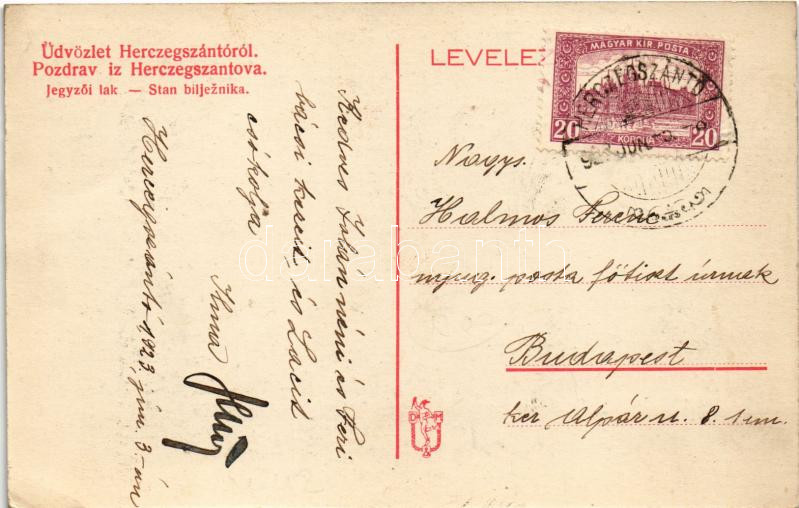 Üdvözlet Herczegszántóról.
Pozdrav iz Herczegszantova.
Jegyzői lak — Stan bilježnika.
LEVELEZ
MAGYAR KIR. POSTA
20 KORONA 20
HERCZEGSZÁNTÓ
Kedves Jolán néni és Feri
bácsi kezeit, és Lacit
csókolja
Ilma
Herczegszántó 1923, jún. 3.-án
Nagys.
Halmos Ferenc
nyug. posta főtiszt úrnak
Budapest
ker Alpár u. 8. I em.
D M
darabanth